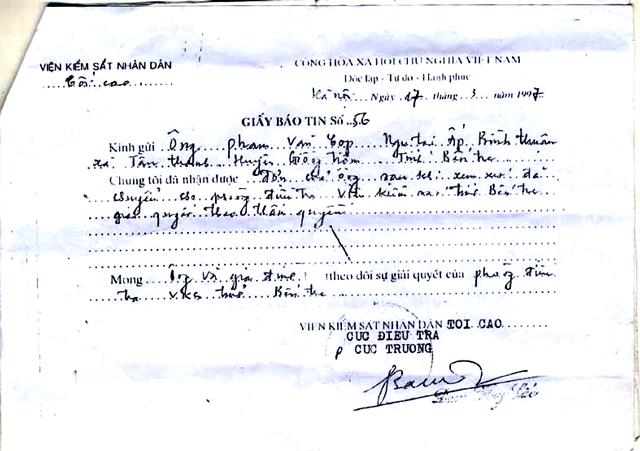 VIỆN KIỂM SÁT NHÂN DÂN
Tối cao
CỘNG HÒA XÃ HỘI CHỦ NGHĨA VIỆT NAM
Độc lập - Tự do - Hạnh phúc
Hà nội Ngày 17 tháng 3 năm 1997
GIẤY BÁO TIN Số 56
Kính gửi Ông phạm Văn Cọp Ngụ tại Ấp Bình thuận
xã Tân thanh Huyện Giồng trôm Tỉnh Bến tre
Chúng tôi đã nhận được đơn của ông sau khi xem xét đã
chuyển cho phòng điều tra Viện kiểm sát tỉnh Bến tre
giải quyết theo thẩm quyền
Mong Ông và gia đình theo dõi sự giải quyết của phòng điều
tra VKS tỉnh Bến tre
VIỆN KIỂM SÁT NHÂN DÂN TOI CAO
CUC ĐIEU TRA
P CUC TRUONG